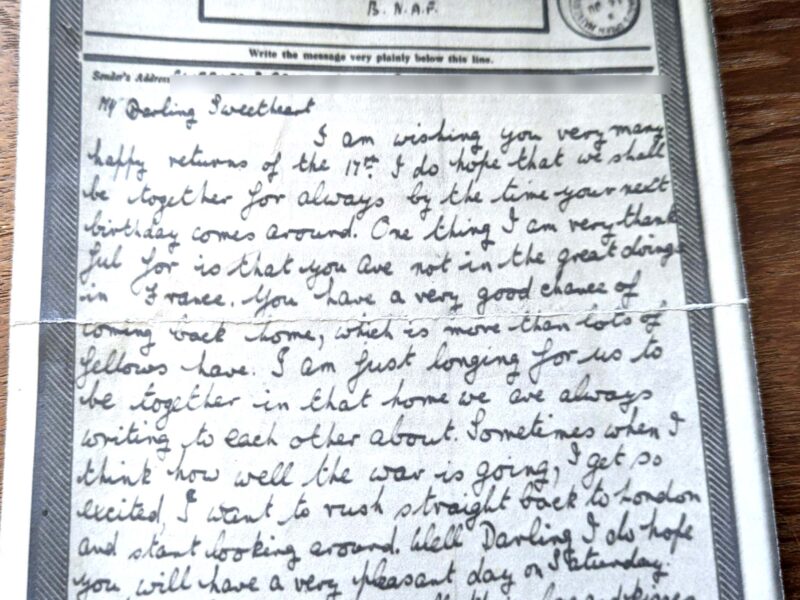 B. N. A. F.
Write the message very plainly below this line.
Sender's Address
My Darling Sweetheart
I am wishing you very many
happy returns of the 17th. I do hope that we shall
be together for always by the time your next
birthday comes around. One thing I am very thank
ful for is that you are not in the great doings
in France. You have a very good chance of
coming back home, which is more than lots of
fellows have. I am just longing for us to
be together in that home we are always
writing to each other about. Sometimes when I
think how well the war is going, I get so
excited, I want to rush straight back to London
and start looking around. Well Darling I do hope
you will have a very pleasant day on Saturday.